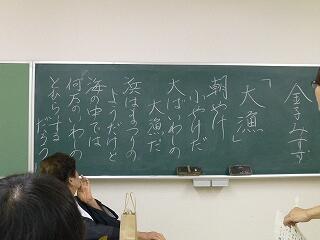 金子みすゞ
「大漁」
朝やけ
小やけだ
大ばいわしの
大漁だ
浜はまつりの
ようだけど
海の中では
何万のいわしの
とむらいする
だろう